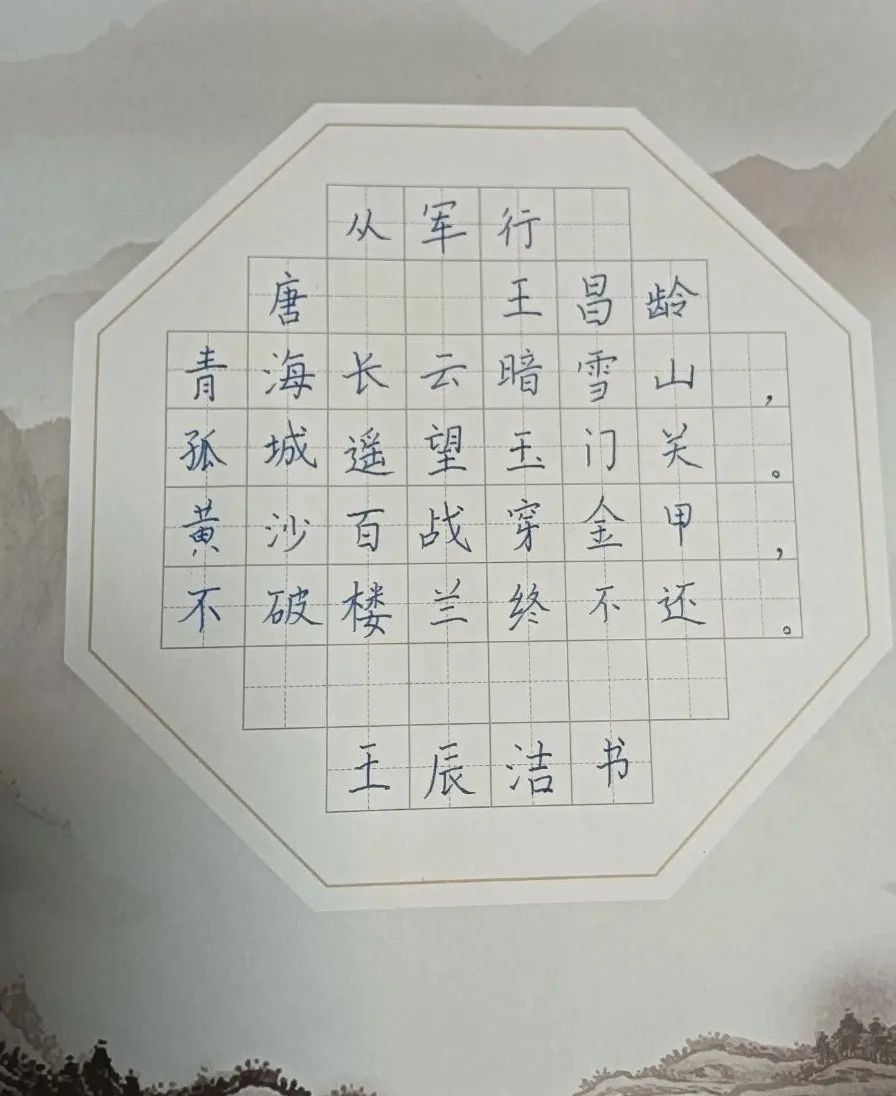 从军行
唐 王昌龄
青海长云暗雪山，
孤城遥望玉门关。
黄沙百战穿金甲，
不破楼兰终不还。
王辰洁书